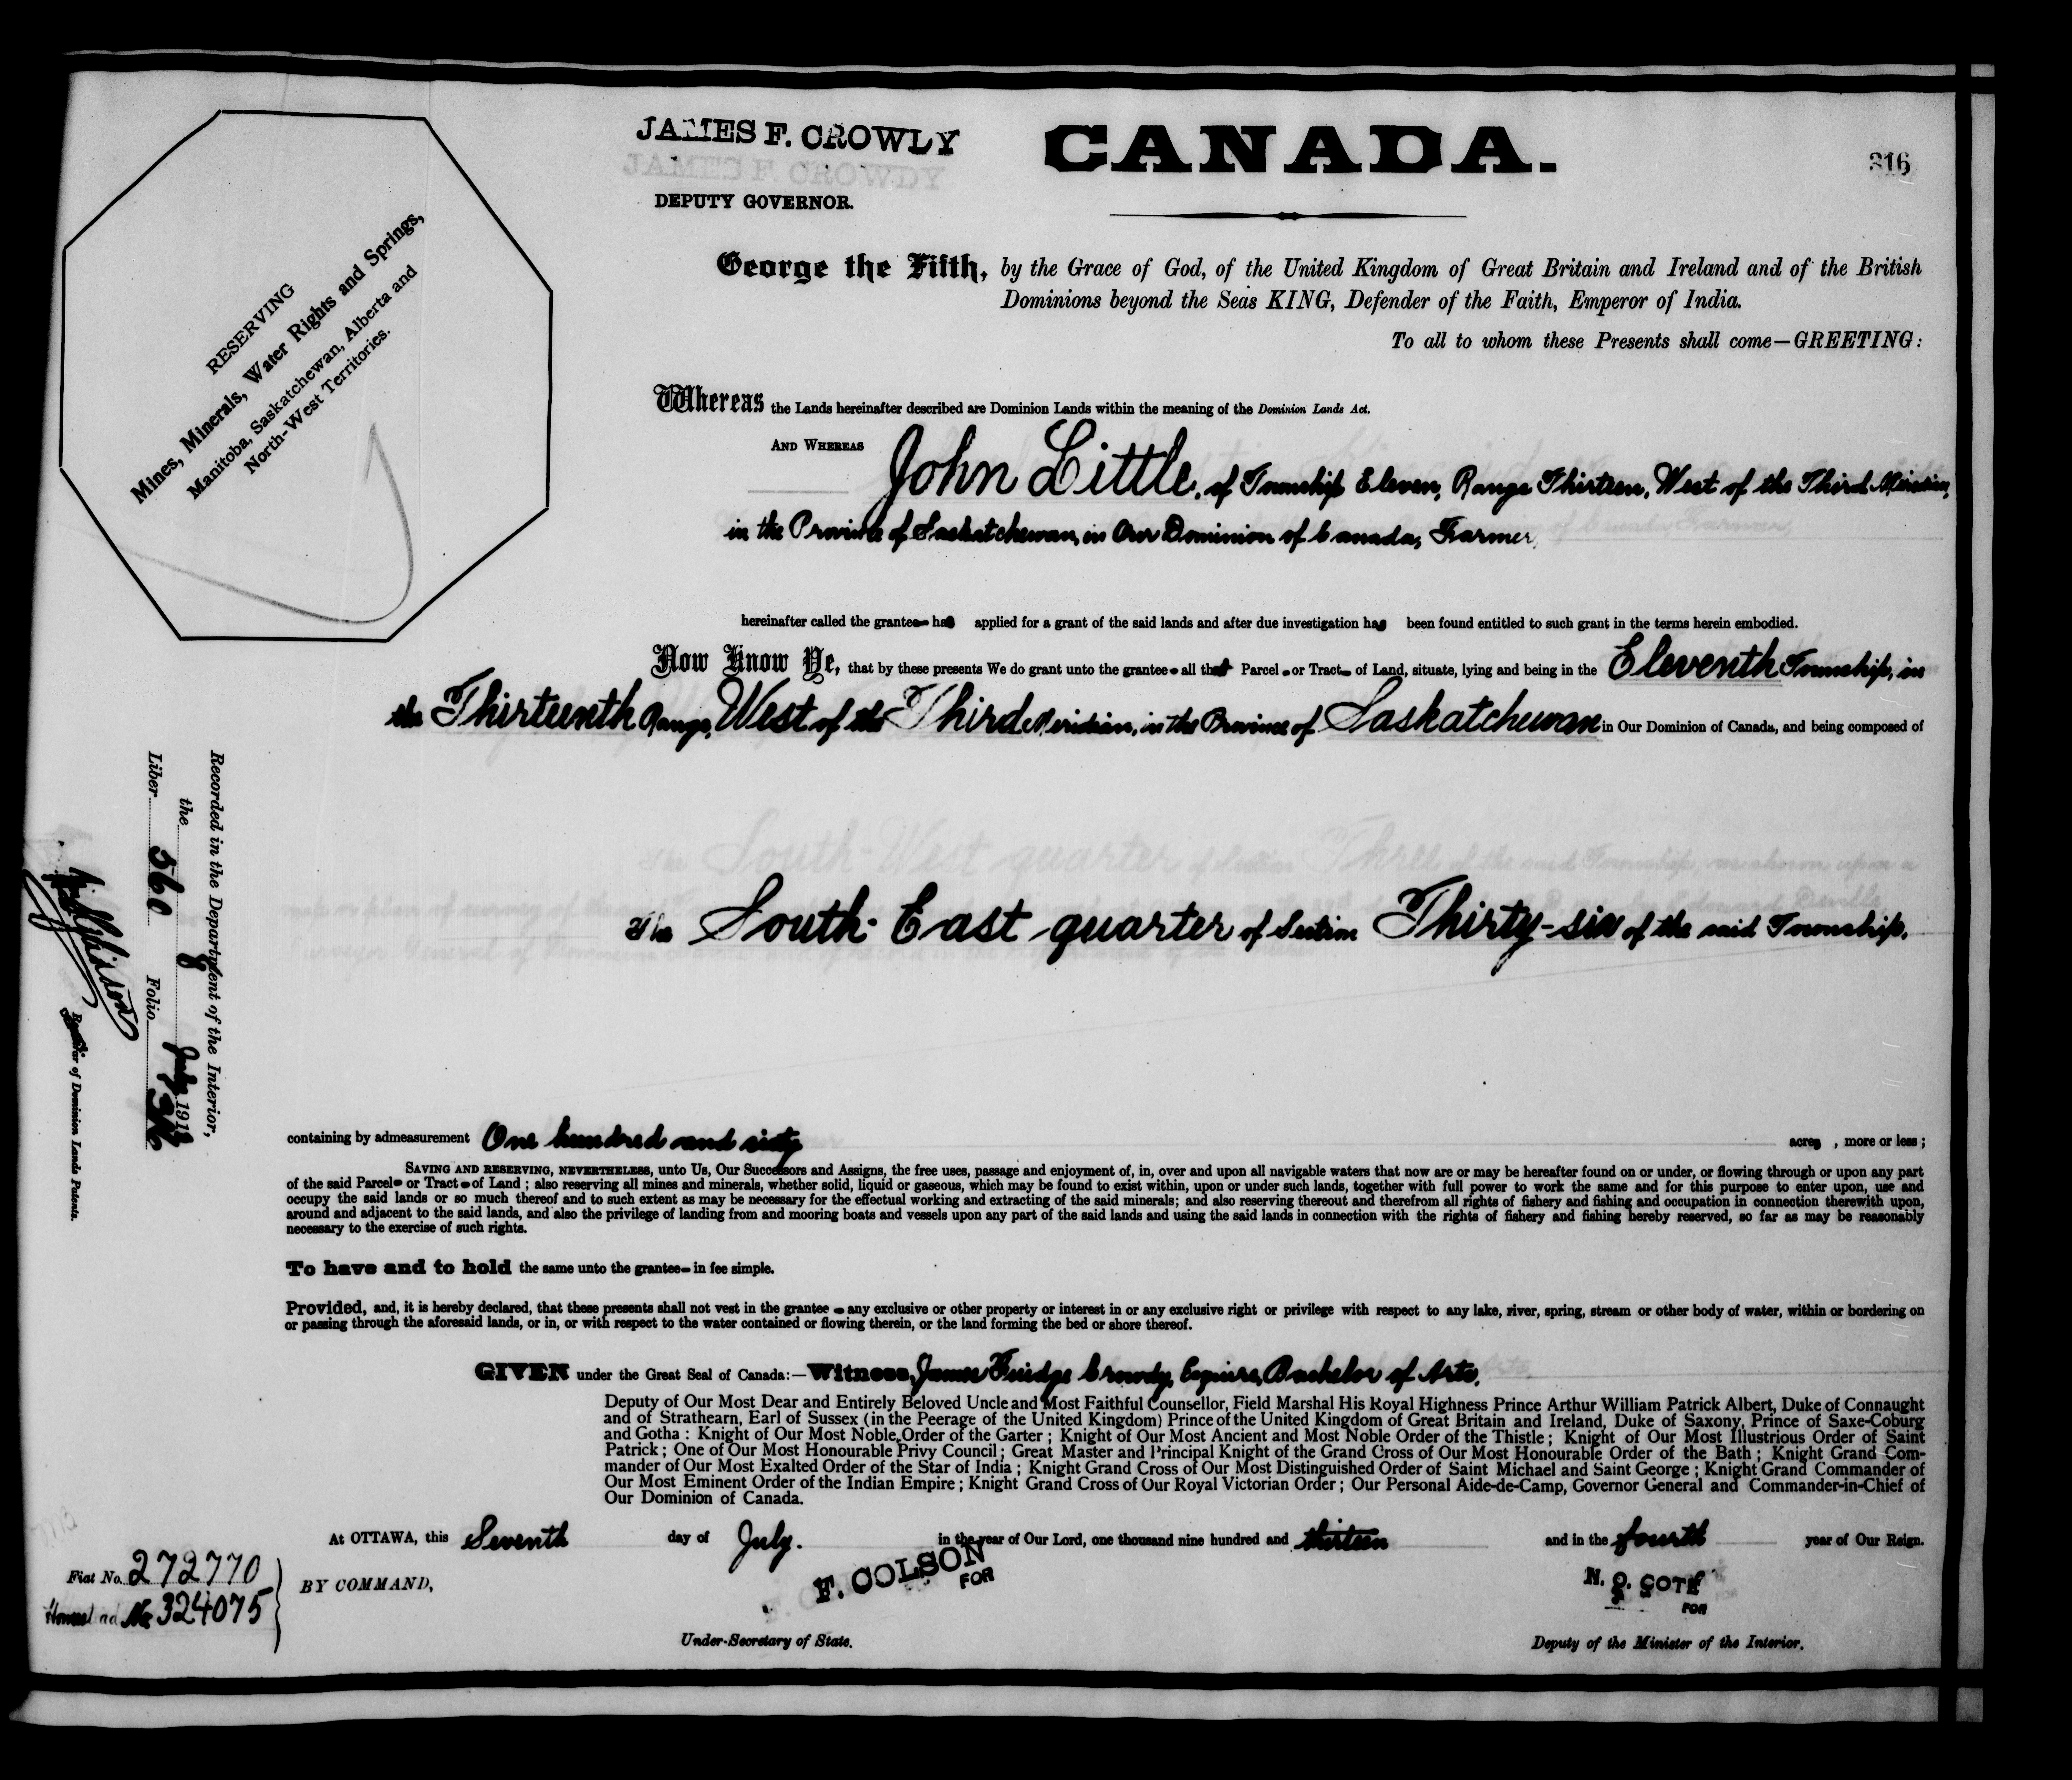 JAMES F. CROWLY
JAMES F. CROWDY
DEPUTY GOVERNOR.
CANADA.
316
RESERVING
Mines, Minerals, Water Rights and Springs,
Manitoba, Saskatchewan, Alberta and
North-West Territories.
George the Fifth, by the Grace of God, of the United Kingdom of Great Britain and Ireland and of the British
Dominions beyond the Seas KING, Defender of the Faith, Emperor of India.
To all to whom these Presents shall come—GREETING:
Whereas the Lands hereinafter described are Dominion Lands within the meaning of the Dominion Lands Act.
AND WHEREAS John Little, of Township Eleven, Range Thirteen, West of the Third Meridian,
in the Province of Saskatchewan, in Our Dominion of Canada, Farmer,
hereinafter called the grantee has applied for a grant of the said lands and after due investigation has been found entitled to such grant in the terms herein embodied.
Now Know Ye, that by these presents We do grant unto the grantee all that Parcel or Tract of Land, situate, lying and being in the Eleventh Township, in
the Thirteenth Range, West of the Third Meridian, in the Province of Saskatchewan in Our Dominion of Canada, and being composed of
The South-East quarter of Section Thirty-six of the said Township.
containing by admeasurement One hundred and sixty acres, more or less;
SAVING AND RESERVING, NEVERTHELESS, unto Us, Our Successors and Assigns, the free uses, passage and enjoyment of, in, over and upon all navigable waters that now are or may be hereafter found on or under, or flowing through or upon any part
of the said Parcel or Tract of Land; also reserving all mines and minerals, whether solid, liquid or gaseous, which may be found to exist within, upon or under such lands, together with full power to work the same and for this purpose to enter upon, use and
occupy the said lands or so much thereof and to such extent as may be necessary for the effectual working and extracting of the said minerals; and also reserving thereout and therefrom all rights of fishery and fishing and occupation in connection therewith upon,
around and adjacent to the said lands, and also the privilege of landing from and mooring boats and vessels upon any part of the said lands and using the said lands in connection with the rights of fishery and fishing hereby reserved, so far as may be reasonably
necessary to the exercise of such rights.
To have and to hold the same unto the grantee in fee simple.
Provided, and, it is hereby declared, that these presents shall not vest in the grantee any exclusive or other property or interest in or any exclusive right or privilege with respect to any lake, river, spring, stream or other body of water, within or bordering on
or passing through the aforesaid lands, or in, or with respect to the water contained or flowing therein, or the land forming the bed or shore thereof.
GIVEN under the Great Seal of Canada:—Witness, James Fuidge Crowdy, Esquire, Bachelor of Arts,
Deputy of Our Most Dear and Entirely Beloved Uncle and Most Faithful Counsellor, Field Marshal His Royal Highness Prince Arthur William Patrick Albert, Duke of Connaught
and of Strathearn, Earl of Sussex (in the Peerage of the United Kingdom) Prince of the United Kingdom of Great Britain and Ireland, Duke of Saxony, Prince of Saxe-Coburg
and Gotha: Knight of Our Most Noble Order of the Garter; Knight of Our Most Ancient and Most Noble Order of the Thistle; Knight of Our Most Illustrious Order of Saint
Patrick; One of Our Most Honourable Privy Council; Great Master and Principal Knight of the Grand Cross of Our Most Honourable Order of the Bath; Knight Grand Com-
mander of Our Most Exalted Order of the Star of India; Knight Grand Cross of Our Most Distinguished Order of Saint Michael and Saint George; Knight Grand Commander of
Our Most Eminent Order of the Indian Empire; Knight Grand Cross of Our Royal Victorian Order; Our Personal Aide-de-Camp, Governor General and Commander-in-Chief of
Our Dominion of Canada.
At OTTAWA, this Seventh day of July. in the year of Our Lord, one thousand nine hundred and thirteen and in the fourth year of Our Reign.
BY COMMAND,
F. COLSON
FOR
Under-Secretary of State.
N. O. COTE
FOR
Deputy of the Minister of the Interior.
Fiat No. 272770
Homestead No. 324075
Recorded in the Department of the Interior,
the 8 July 1913
Liber 560 Folio 316
Registrar of Dominion Lands Patents.